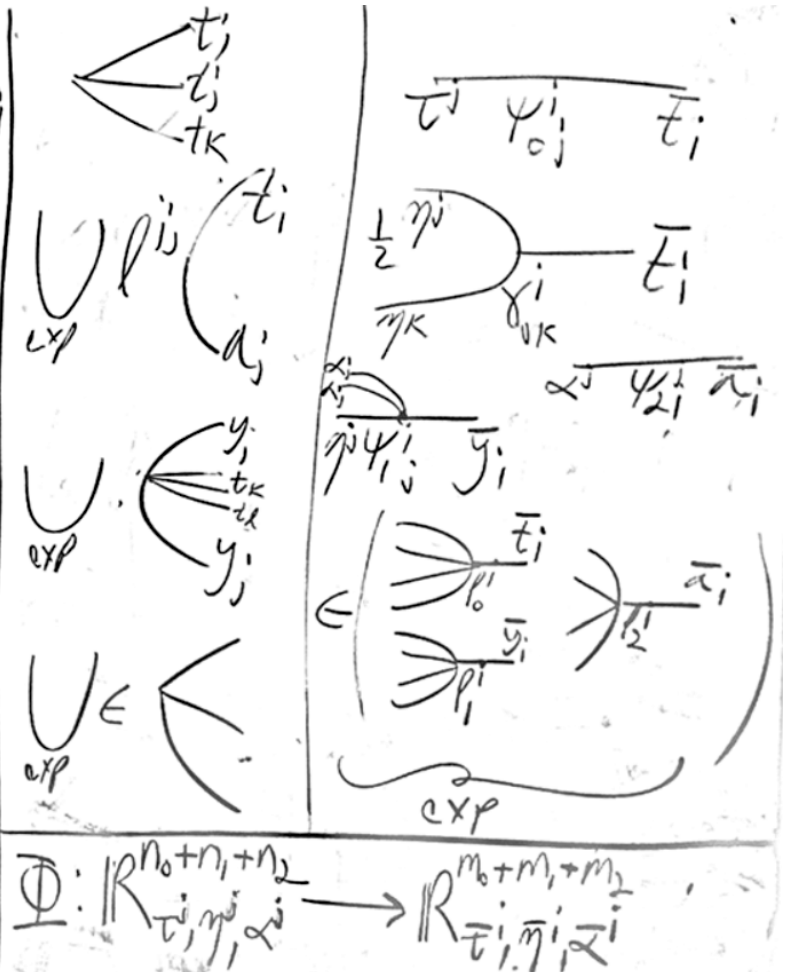 t_i
t_j
t_k
exp l^{ij} t_i
a_j
exp y_i
t_k
t_l
y_j
exp ∈
τ^j ψ_0^i_j \bar{t}_i
\frac{1}{2} η^j
η^k γ^i_{jk} \bar{t}_i
α^j ψ_2^i_j \bar{a}_i
α^i
α^j
η^j ψ_1^i_j \bar{y}_i
∈ ( ρ_0^i \bar{t}_i ρ_2^i \bar{a}_i
ρ_1^i \bar{y}_i )
exp
Φ: ℝ^{n_0+n_1+n_2}_{τ^j, η^j, α^j} → ℝ^{m_0+m_1+m_2}_{\bar{τ}^i, \bar{η}^i, \bar{α}^i}